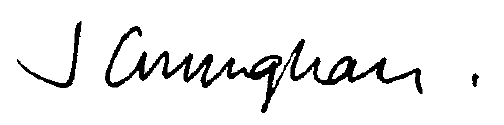 J Cunningham.